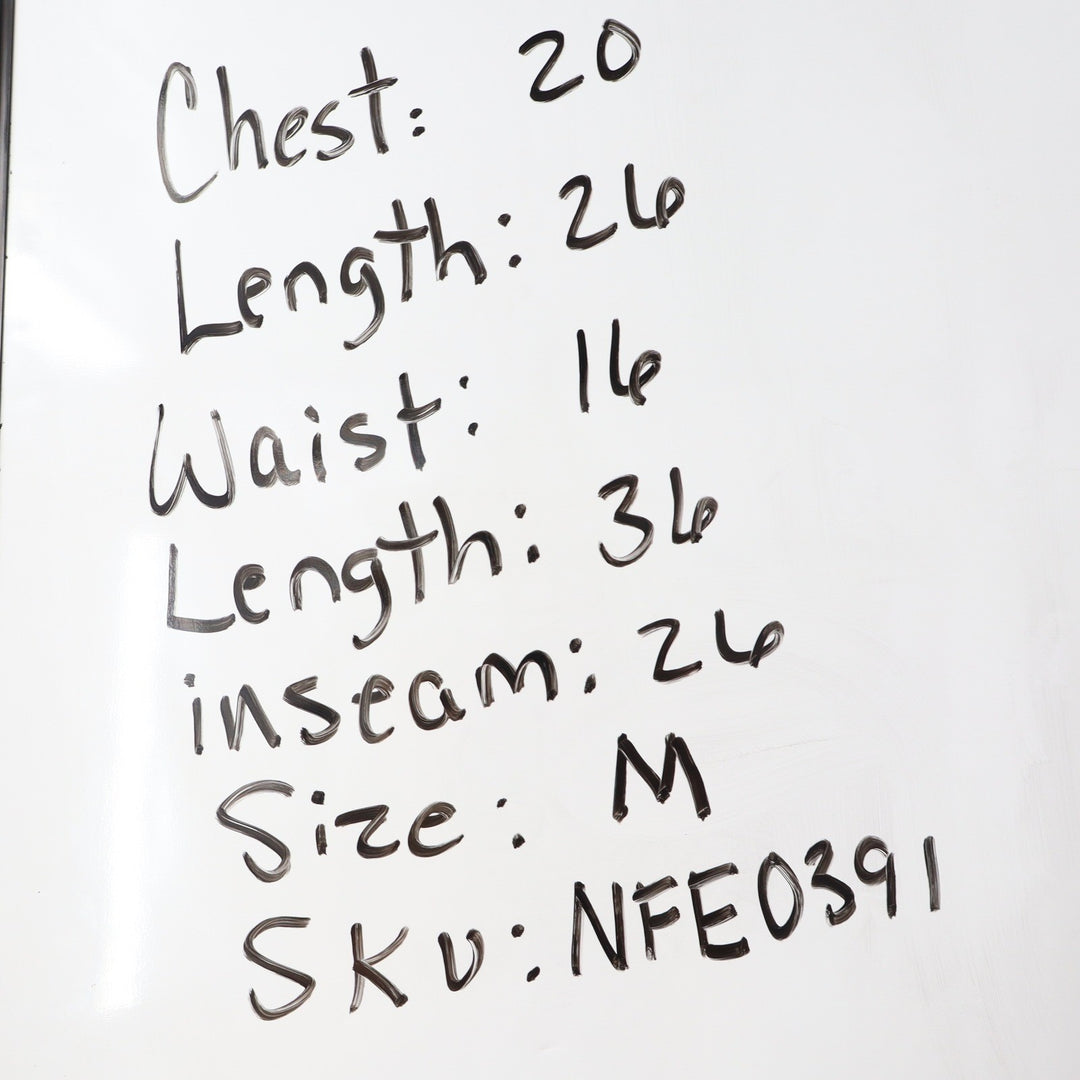 Chest: 20
Length: 26
Waist: 16
Length: 36
inseam: 26
Size: M
SKU: NFE0391